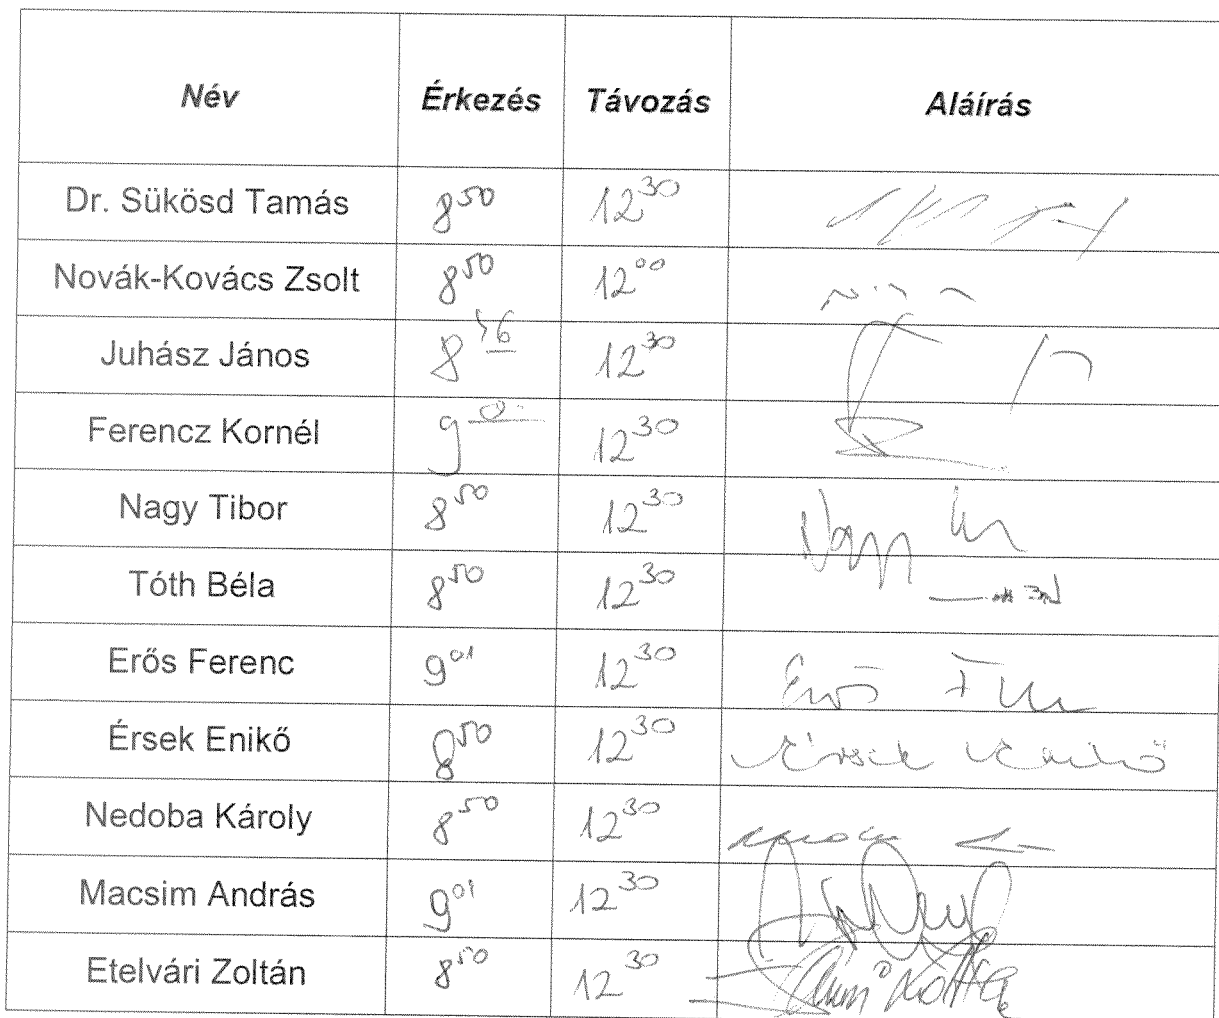 Név Érkezés Távozás Aláírás
Dr. Sükösd Tamás 8⁵⁰ 12³⁰
Novák-Kovács Zsolt 8⁵⁰ 12⁰⁰
Juhász János 8 12³⁰
Ferencz Kornél 9 12³⁰
Nagy Tibor 8⁵⁰ 12³⁰ Nagy
Tóth Béla 8⁵⁰ 12³⁰
Erős Ferenc 9⁰¹ 12³⁰ Erős
Érsek Enikő 8⁵⁰ 12³⁰ Érsek Enikő
Nedoba Károly 8⁵⁰ 12³⁰
Macsim András 9⁰¹ 12³⁰
Etelvári Zoltán 8⁵⁰ 12³⁰